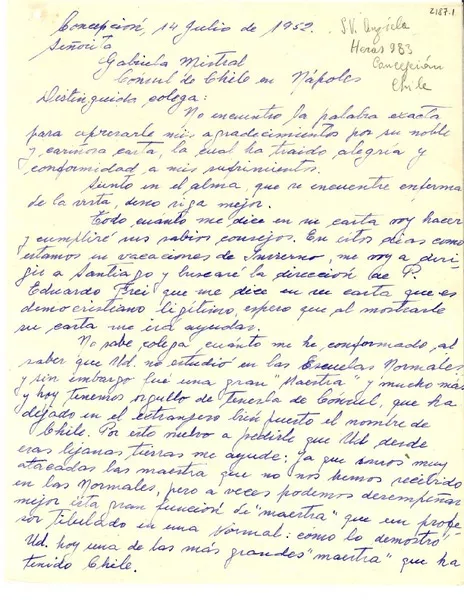 2187.1
Concepción, 14 Julio de 1952.
Sv. Angela
Heras 983
Concepción
Chile
Señorita
Gabriela Mistral
Cónsul de Chile en Nápoles
Distinguida colega:
No encuentro la palabra exacta
para expresarle mis agradecimientos por su noble
y cariñosa carta, la cual ha traído alegría y
conformidad a mis sufrimientos.
Siento en el alma, que se encuentre enferma
de la vista, deseo siga mejor.
Todo cuánto me dice en su carta voy hacer
y cumpliré sus sabios consejos. En estos días como
estamos en vacaciones de Invierno, me voy a diri-
gir a Santiago y buscaré la dirección de P.
Eduardo Frei que me dice en su carta que es
democristiano legítimo, espero que al mostrarle
su carta me irá ayudar.
No sabe colega cuánto me he conformado, al
saber que Ud. no estudió en las Escuelas Normales
y sin embargo fué una gran "Maestra" y mucho más
y hoy tenemos orgullo de tenerla de Cónsul, que ha
dejado en el extranjero bien puesto el nombre de
Chile. Por esto vuelvo a pedirle que Ud. desde
esas lejanas tierras me ayude: ya que somos muy
atacadas las maestra que no nos hemos recibido
en las Normales, pero a veces podemos desempeñar
mejor ésta gran función de "maestra" que un profe-
sor titulado en una Normal: como lo demostró
Ud. hoy una de las más grandes "maestra" que ha
tenido Chile.